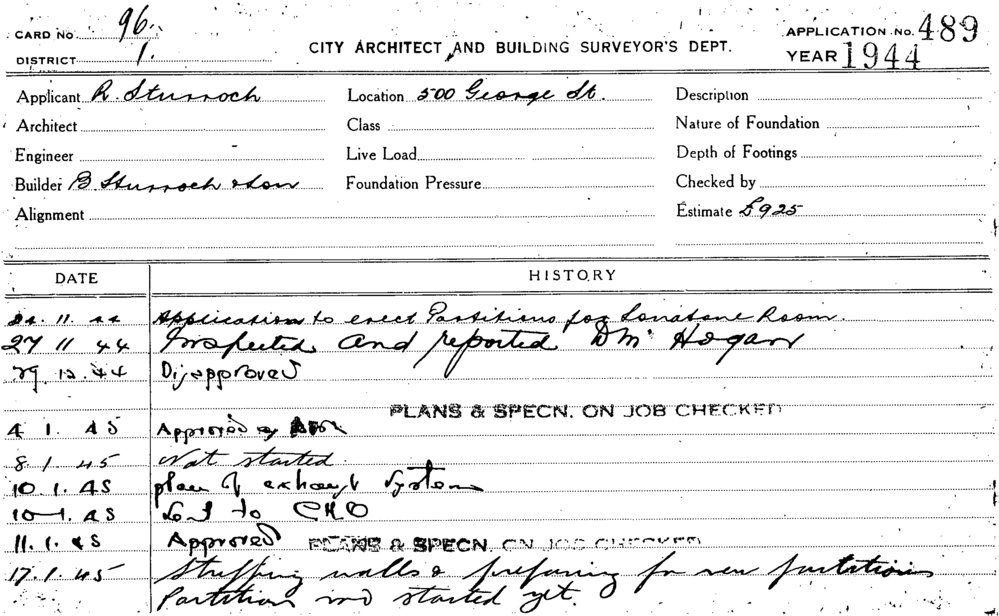 CARD No 96.
CITY ARCHITECT AND BUILDING SURVEYOR'S DEPT.
APPLICATION No. 489
DISTRICT 1.
YEAR 1944
Applicant R. Sturroch Location 500 George St. Description
Architect Class Nature of Foundation
Engineer Live Load Depth of Footings
Builder B Sturroch & Son Foundation Pressure Checked by
Alignment Estimate £925
DATE HISTORY
11. 44 Application to erect Partitions for Room.
27 11 44 Inspected and reported D Mc Hogan
29. 12. 44 Disapproved
PLANS & SPECN. ON JOB CHECKED
4. 1. 45 Approved by
8. 1. 45 Not started.
10. 1. 45 plan of exhaust system
10-1. 45 to CMO
11. 1. 45 Approved PLANS & SPECN. ON JOB CHECKED
17. 1. 45 Stripping walls & preparing for new partitions
Partitions not started yet.